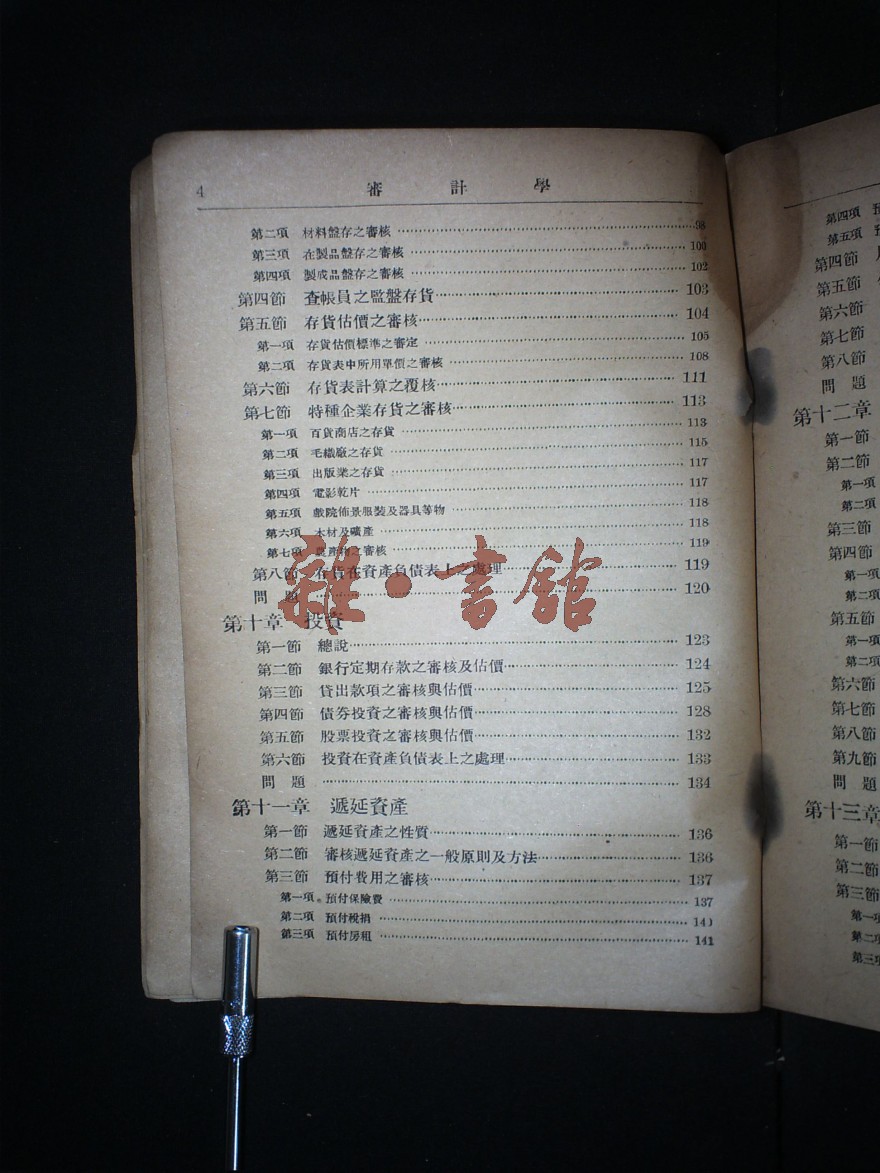 4 審計學
第二項 材料盤存之審核 98
第三項 在製品盤存之審核 100
第四項 製成品盤存之審核 102
第四節 查帳員之監盤存貨 103
第五節 存貨估價之審核 104
第一項 存貨估價標準之審定 105
第二項 存貨表中所用單價之審核 108
第六節 存貨表計算之覆核 111
第七節 特種企業存貨之審核 113
第一項 百貨商店之存貨 113
第二項 毛織廠之存貨 115
第三項 出版業之存貨 117
第四項 電影乾片 117
第五項 戲院佈景服裝及器具等物 118
第六項 木材及礦產 118
第七項 農產物之審核 119
第八節 存貨在資產負債表上之處理 119
問題 120
雜·書館
第十章 投資
第一節 總說 123
第二節 銀行定期存款之審核及估價 124
第三節 貸出款項之審核與估價 125
第四節 債券投資之審核與估價 128
第五節 股票投資之審核與估價 132
第六節 投資在資產負債表上之處理 133
問題 134
第十一章 遞延資產
第一節 遞延資產之性質 136
第二節 審核遞延資產之一般原則及方法 136
第三節 預付費用之審核 137
第一項 預付保險費 137
第二項 預付稅捐 141
第三項 預付房租 141
第四項 預
第五項 預
第四節
第五節
第六節
第七節
第八節
問題
第十二章
第一節
第二節
第一項
第二項
第三節
第四節
第一項
第二項
第五節
第一項
第二項
第六節
第七節
第八節
第九節
問題
第十三章
第一節
第二節
第三節
第一項
第二項
第三項